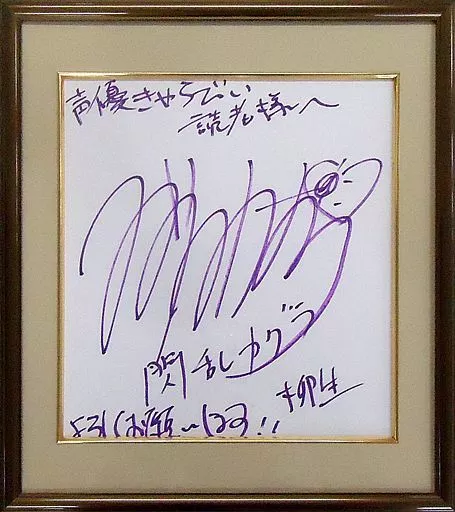 声優きゃらびぃ
読者様へ
閃乱カグラ
柳生
よろしくお願いします!!